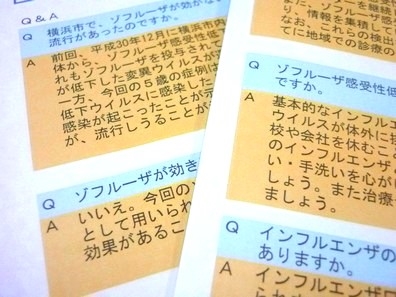 Q & A
Q 横浜市で、ゾフルーザが効かない
流行があったのですか。
A 前回、平成30年12月に横浜市内
体から、ゾフルーザ感受性低
れもゾフルーザを投与されて
が低下した変異ウイルスが
一方、今回の5歳の症例は
低下ウイルスに感染した
感染が起こったことが示
が、流行しうることが
Q ゾフルーザが効き
A いいえ。今回の
として用いられ
効果があるこ
また、これを継続
り、情報を集積して
なお、これらの検出
てに地域での診療の
Q ゾフルーザ感受性低
ですか。
A 基本的なインフル
ウイルスが体外に排
校や会社を休むこ
のインフルエンザ・
い・手洗いを心が
しょう。また治療
ましょう。
Q インフルエンザの
ありますか。
A インフルエンザ